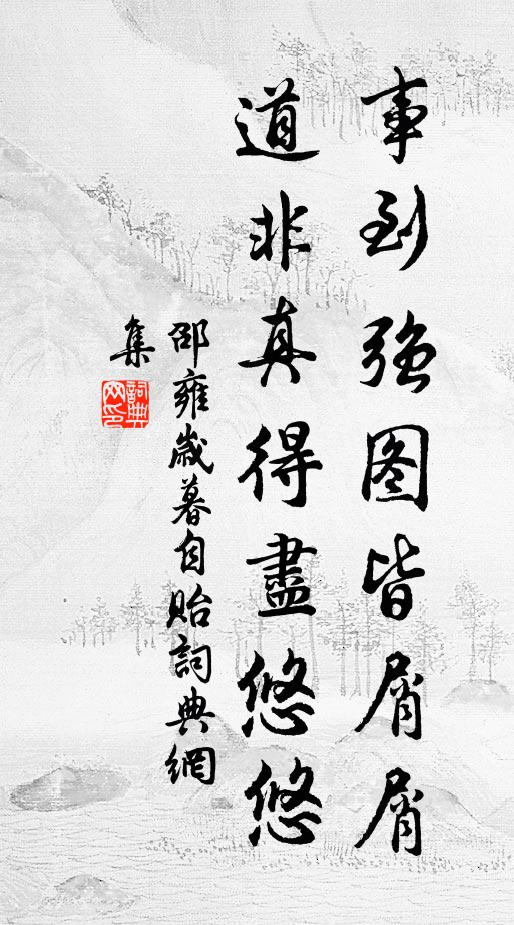 事到強图皆屑屑
道非真得盡悠悠
邵雍歲暮自貽詞典網
集
詞典
网印